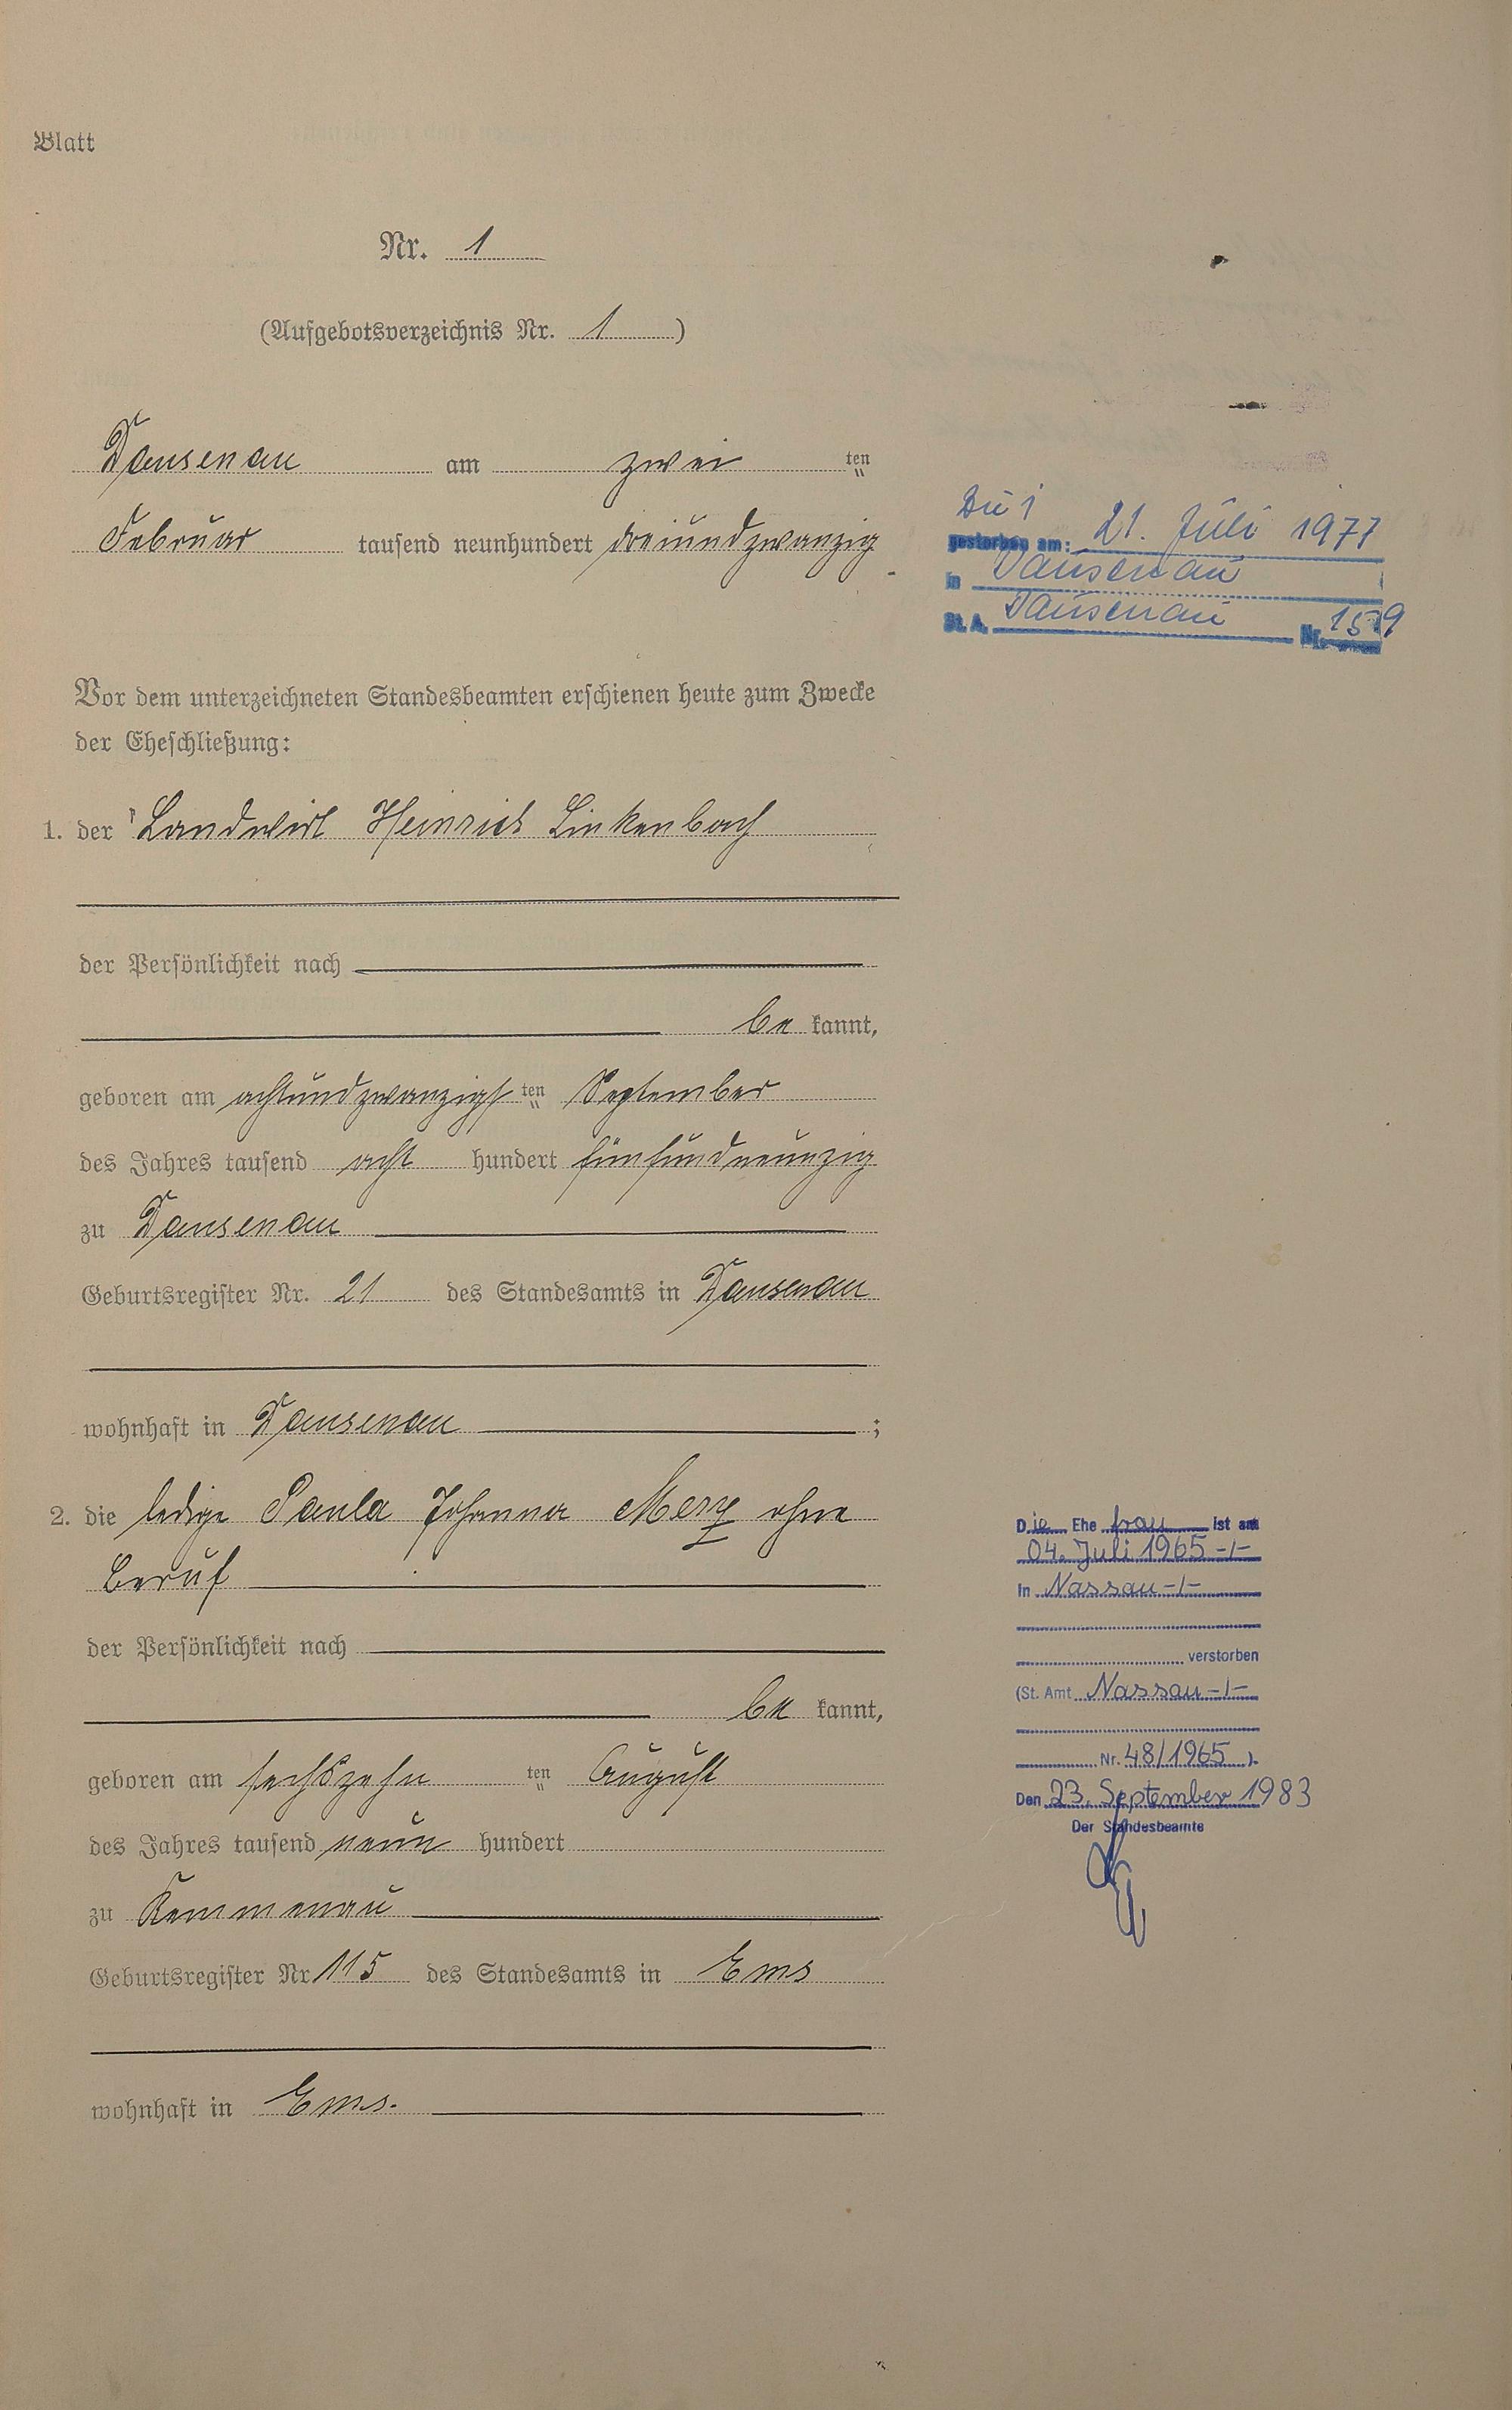 Blatt
Nr. 1
(Aufgebotsverzeichnis Nr. 1)
Dausenau am zwei ten
Februar tausend neunhundert dreiundzwanzig
Vor dem unterzeichneten Standesbeamten erschienen heute zum Zwecke
der Eheschließung:
1. der Landwirt Heinrich Linkenbach
der Persönlichkeit nach
be kannt,
geboren am achtundzwanzigsten September
des Jahres tausend acht hundert fünfundneunzig
zu Dausenau
Geburtsregister Nr. 21 des Standesamts in Dausenau
wohnhaft in Dausenau ;
2. die ledige Paula Johanna Merz ohne
Beruf
der Persönlichkeit nach
be kannt,
geboren am sechszehn ten August
des Jahres tausend neun hundert
zu Kemmenau
Geburtsregister Nr 115 des Standesamts in Ems
wohnhaft in Ems.
gestorben am: 21. Juli 1977
in Dausenau
St. A. Dausenau Nr.
Die Ehe frau ist am
04. Juli 1965 -/-
in Nassau -/-
verstorben
(St. Amt Nassau -/-
Nr. 48/1965 ).
Den 23. September 1983
Der Standesbeamte